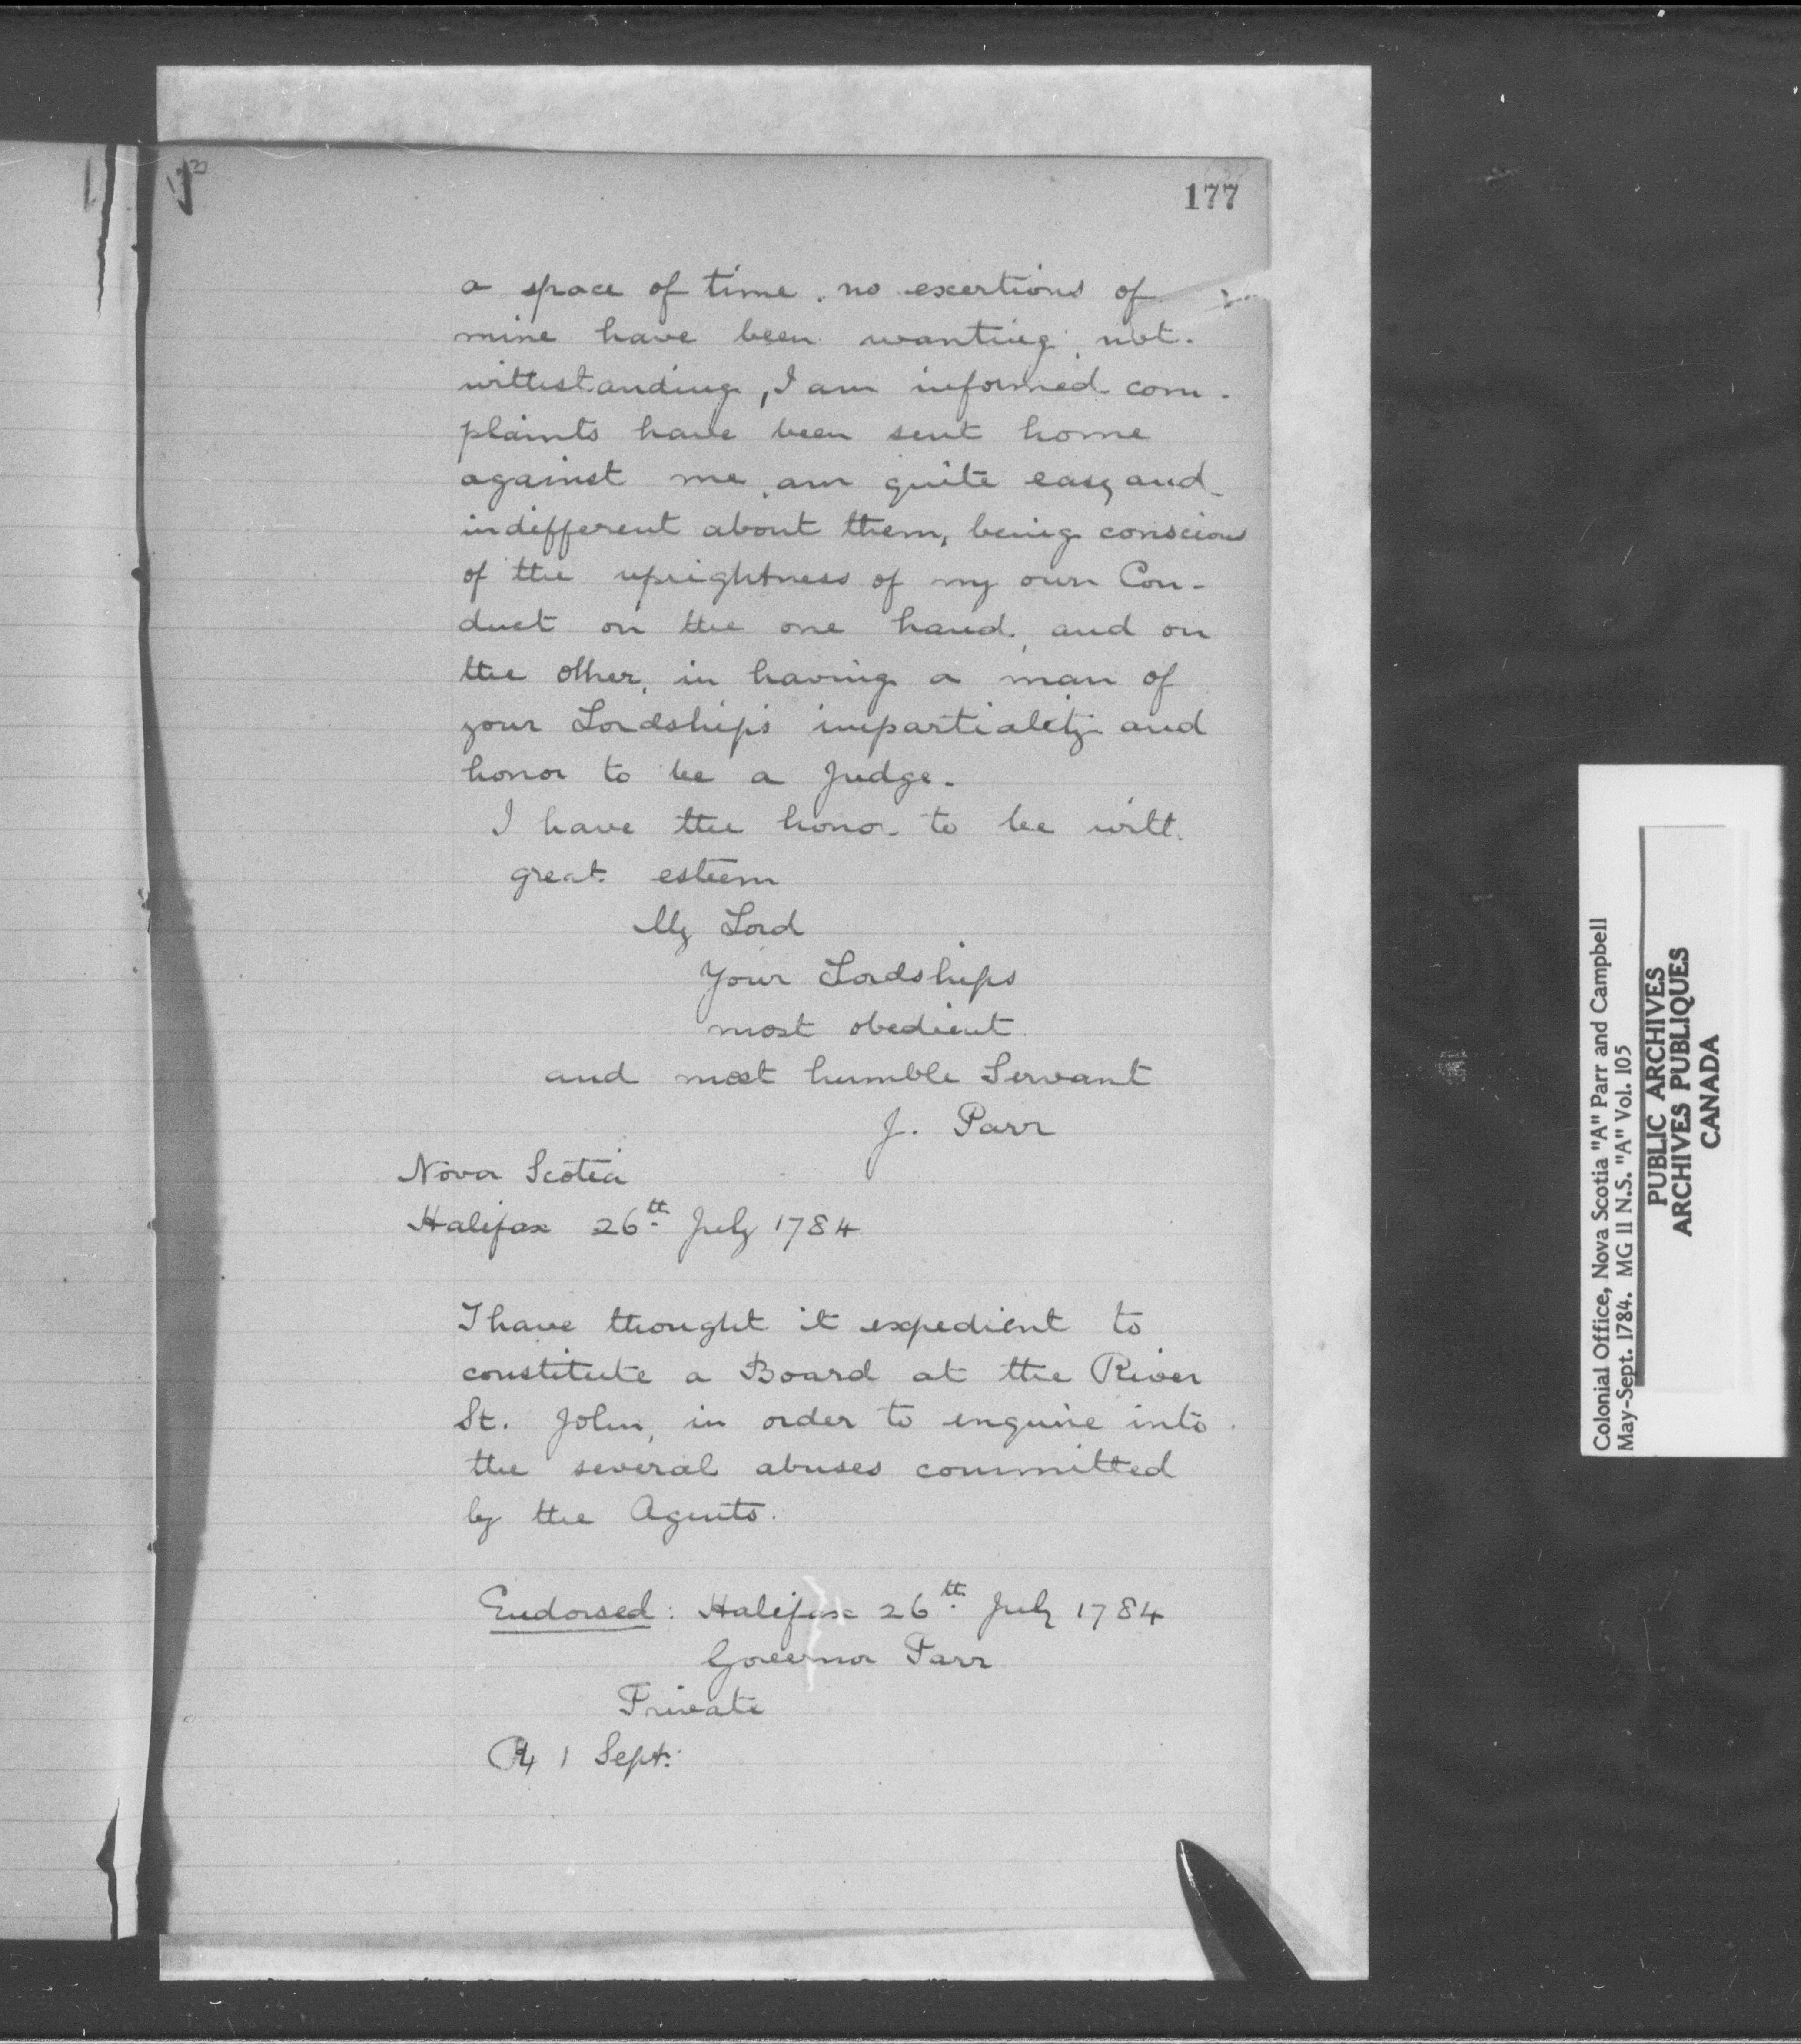 177
a space of time, no exertions of
mine have been wanting, not-
withstanding, I am informed com-
plaints have been sent home
against me, am quite easy and
indifferent about them, being conscious
of the uprightness of my own Con-
duct on the one hand, and on
the other, in having a man of
your Lordship's impartiality and
honor to be a Judge.
I have the honor to be with
great esteem
My Lord
Your Lordships
most obedient
and most humble Servant
J. Parr
Nova Scotia
Halifax 26th July 1784
I have thought it expedient to
constitute a Board at the River
St. John, in order to enquire into
the several abuses committed
by the Agents.
Endorsed: Halifax 26th July 1784
Governor Parr
Private
1 Sept:
Colonial Office, Nova Scotia "A" Parr and Campbell
May-Sept. 1784. MG 11 N.S. "A" Vol. 105
PUBLIC ARCHIVES
ARCHIVES PUBLIQUES
CANADA